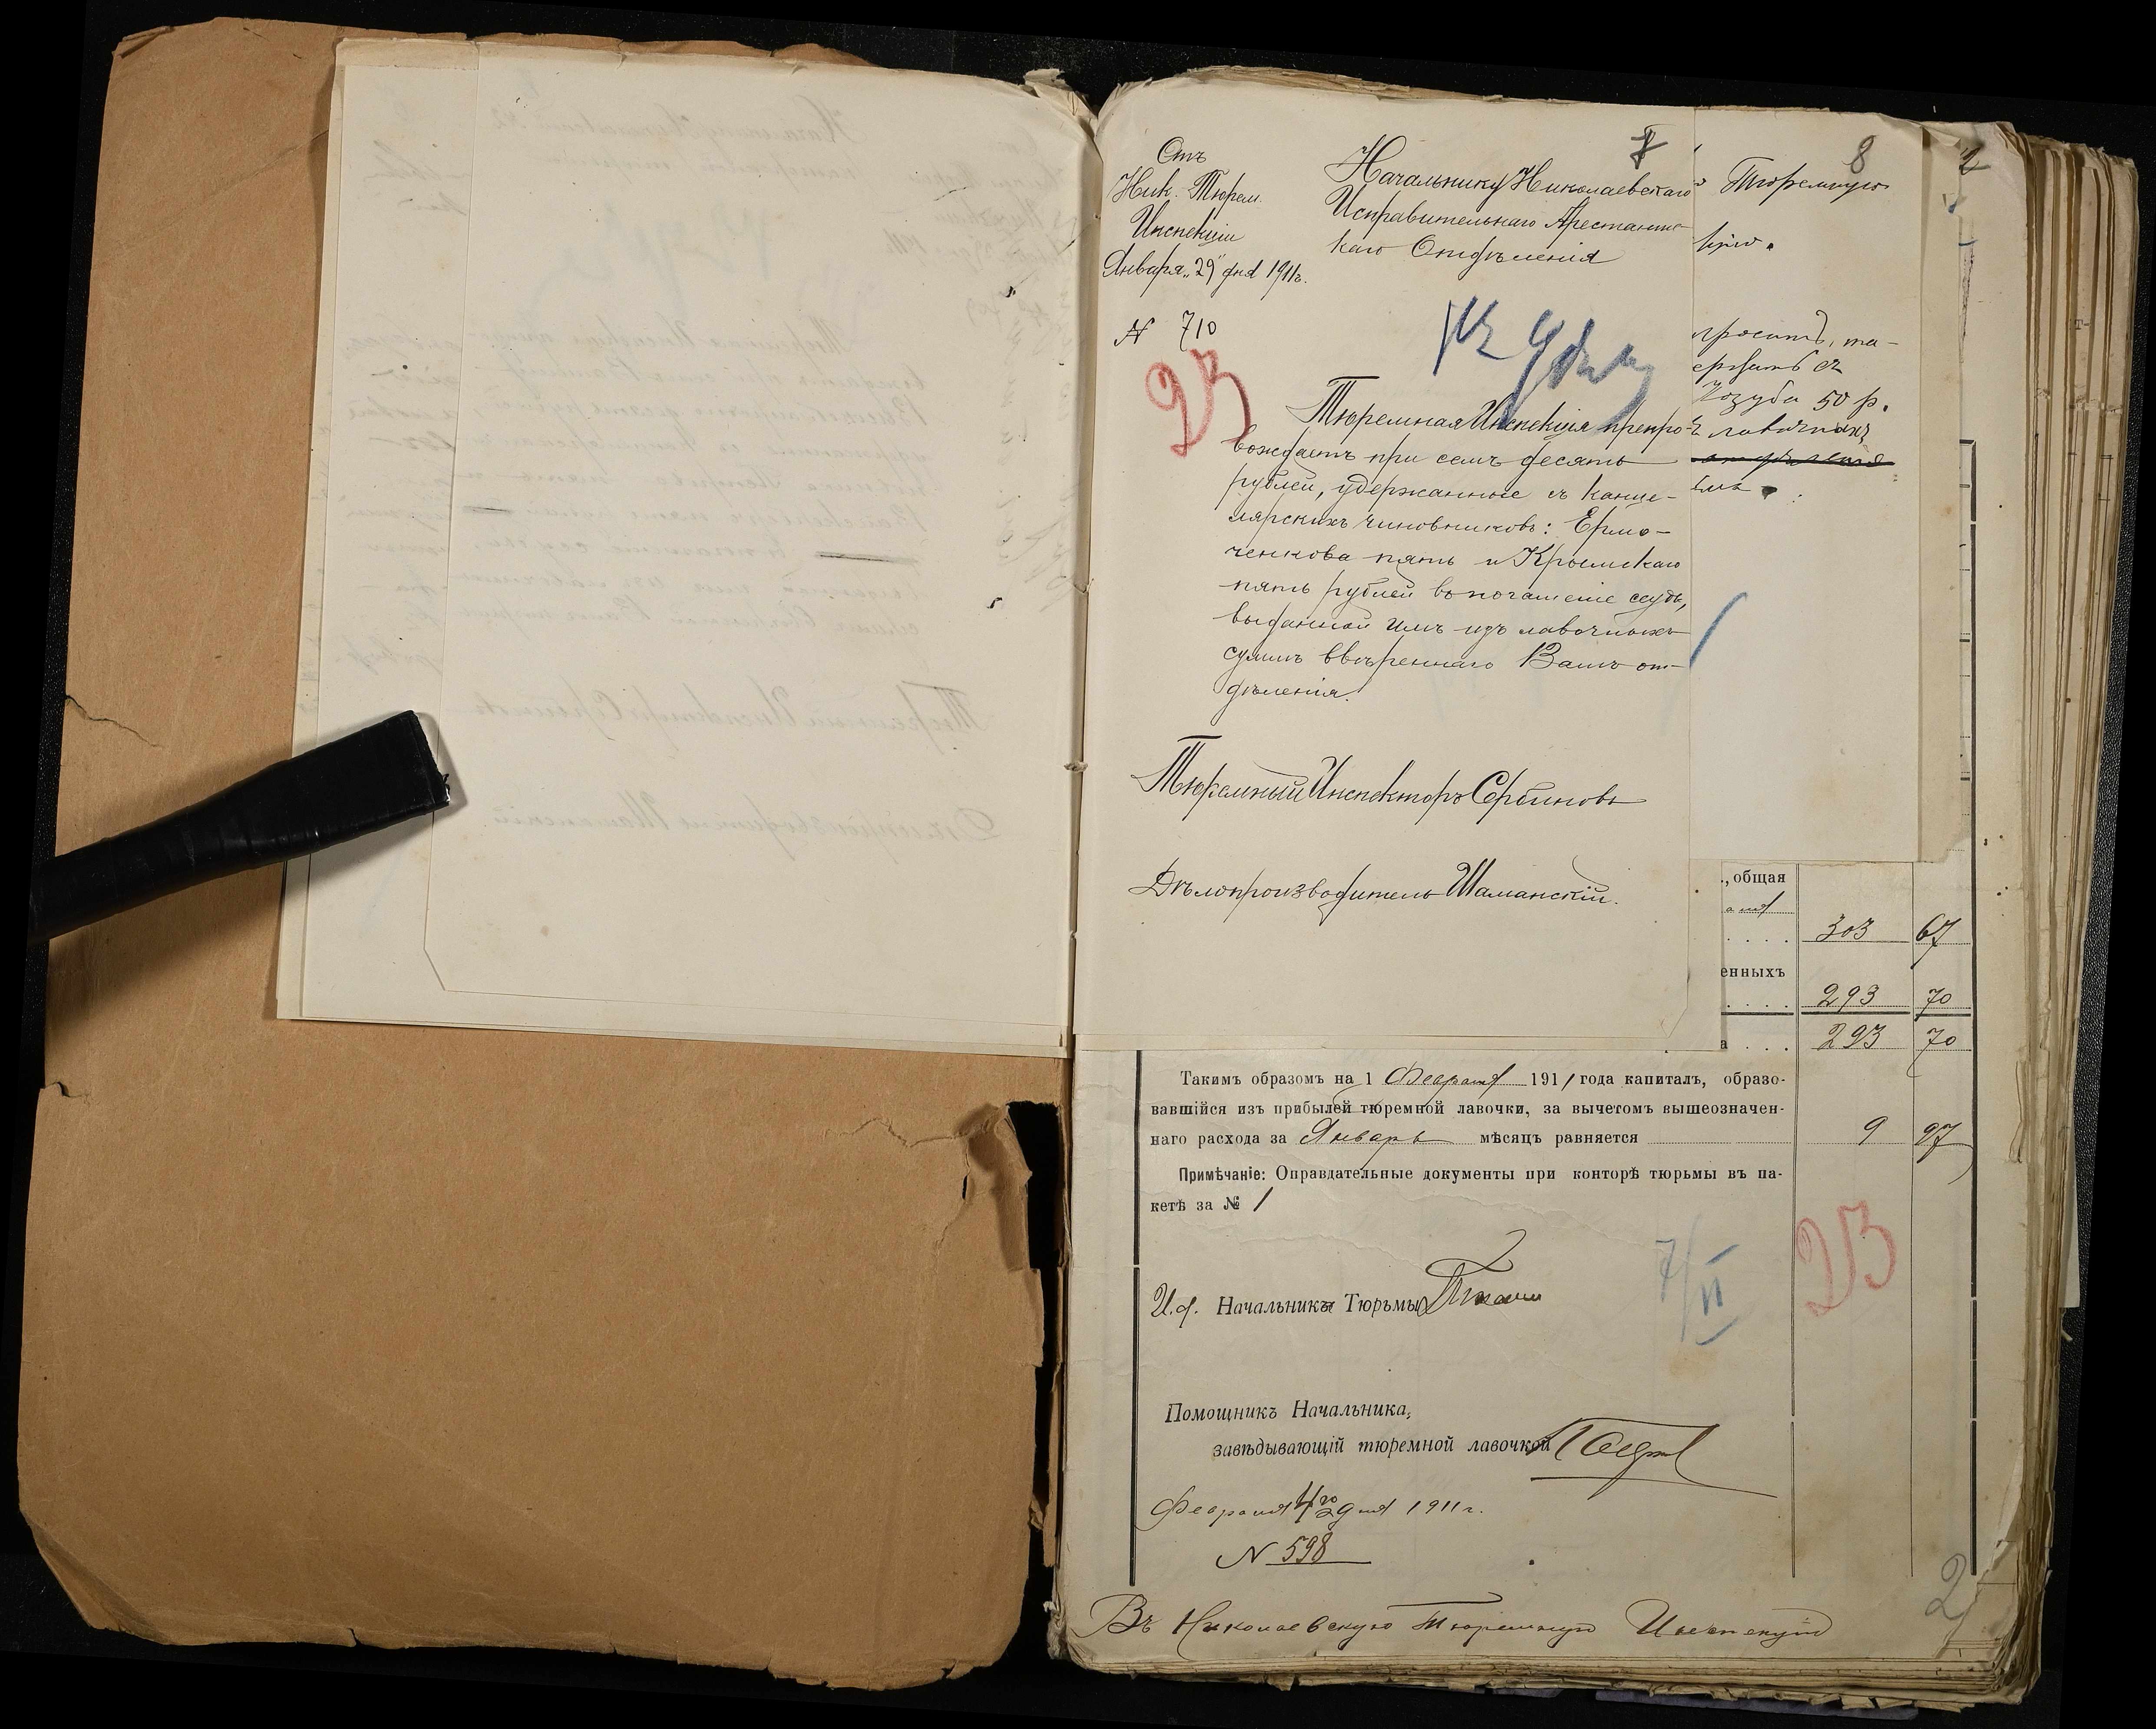 Отъ
Ник. Тюрем.
Инспекціи
Января „29" дня 1911г.
N 710
23
7
Начальнику Николаевскаго
Исправительнаго Арестантс-
каго Отдѣленія
Къ дѣлу
Тюремная Инспекція препро-
вождаетъ при семъ десять
рублей, удержанные съ канце-
лярскихъ чиновниковъ: Ермо-
ченкова пять и Крымскаго
пять рублей въ погашеніе ссудъ,
выданной имъ изъ лавочныхъ
суммъ ввѣреннаго Вамъ от-
дѣленія.
Тюремный Инспекторъ Сербиновъ
Дѣлопроизводитель Шаманскій.
8
Тюремную
цію.
проситъ, та-
ержать съ
Козуба 50 р.
ъ лавочныхъ
отдѣленія
2
., общая
303 67
енныхъ
293 70
а . . . 293 70
Такимъ образомъ на 1 Февраля 1911 года капиталъ, образо-
вавшійся изъ прибылей тюремной лавочки, за вычетомъ вышеозначен-
наго расхода за Январь мѣсяцъ равняется 9 97
Примѣчаніе: Оправдательные документы при конторѣ тюрьмы въ па-
кетѣ за № 1
7/II
23
И.д. Начальника Тюрьмы
Помощникъ Начальника,
завѣдывающій тюремной лавочкой
Февраля 4го дня 1911 г.
N 598
2
Въ Николаевскую Тюремную Инспекцію